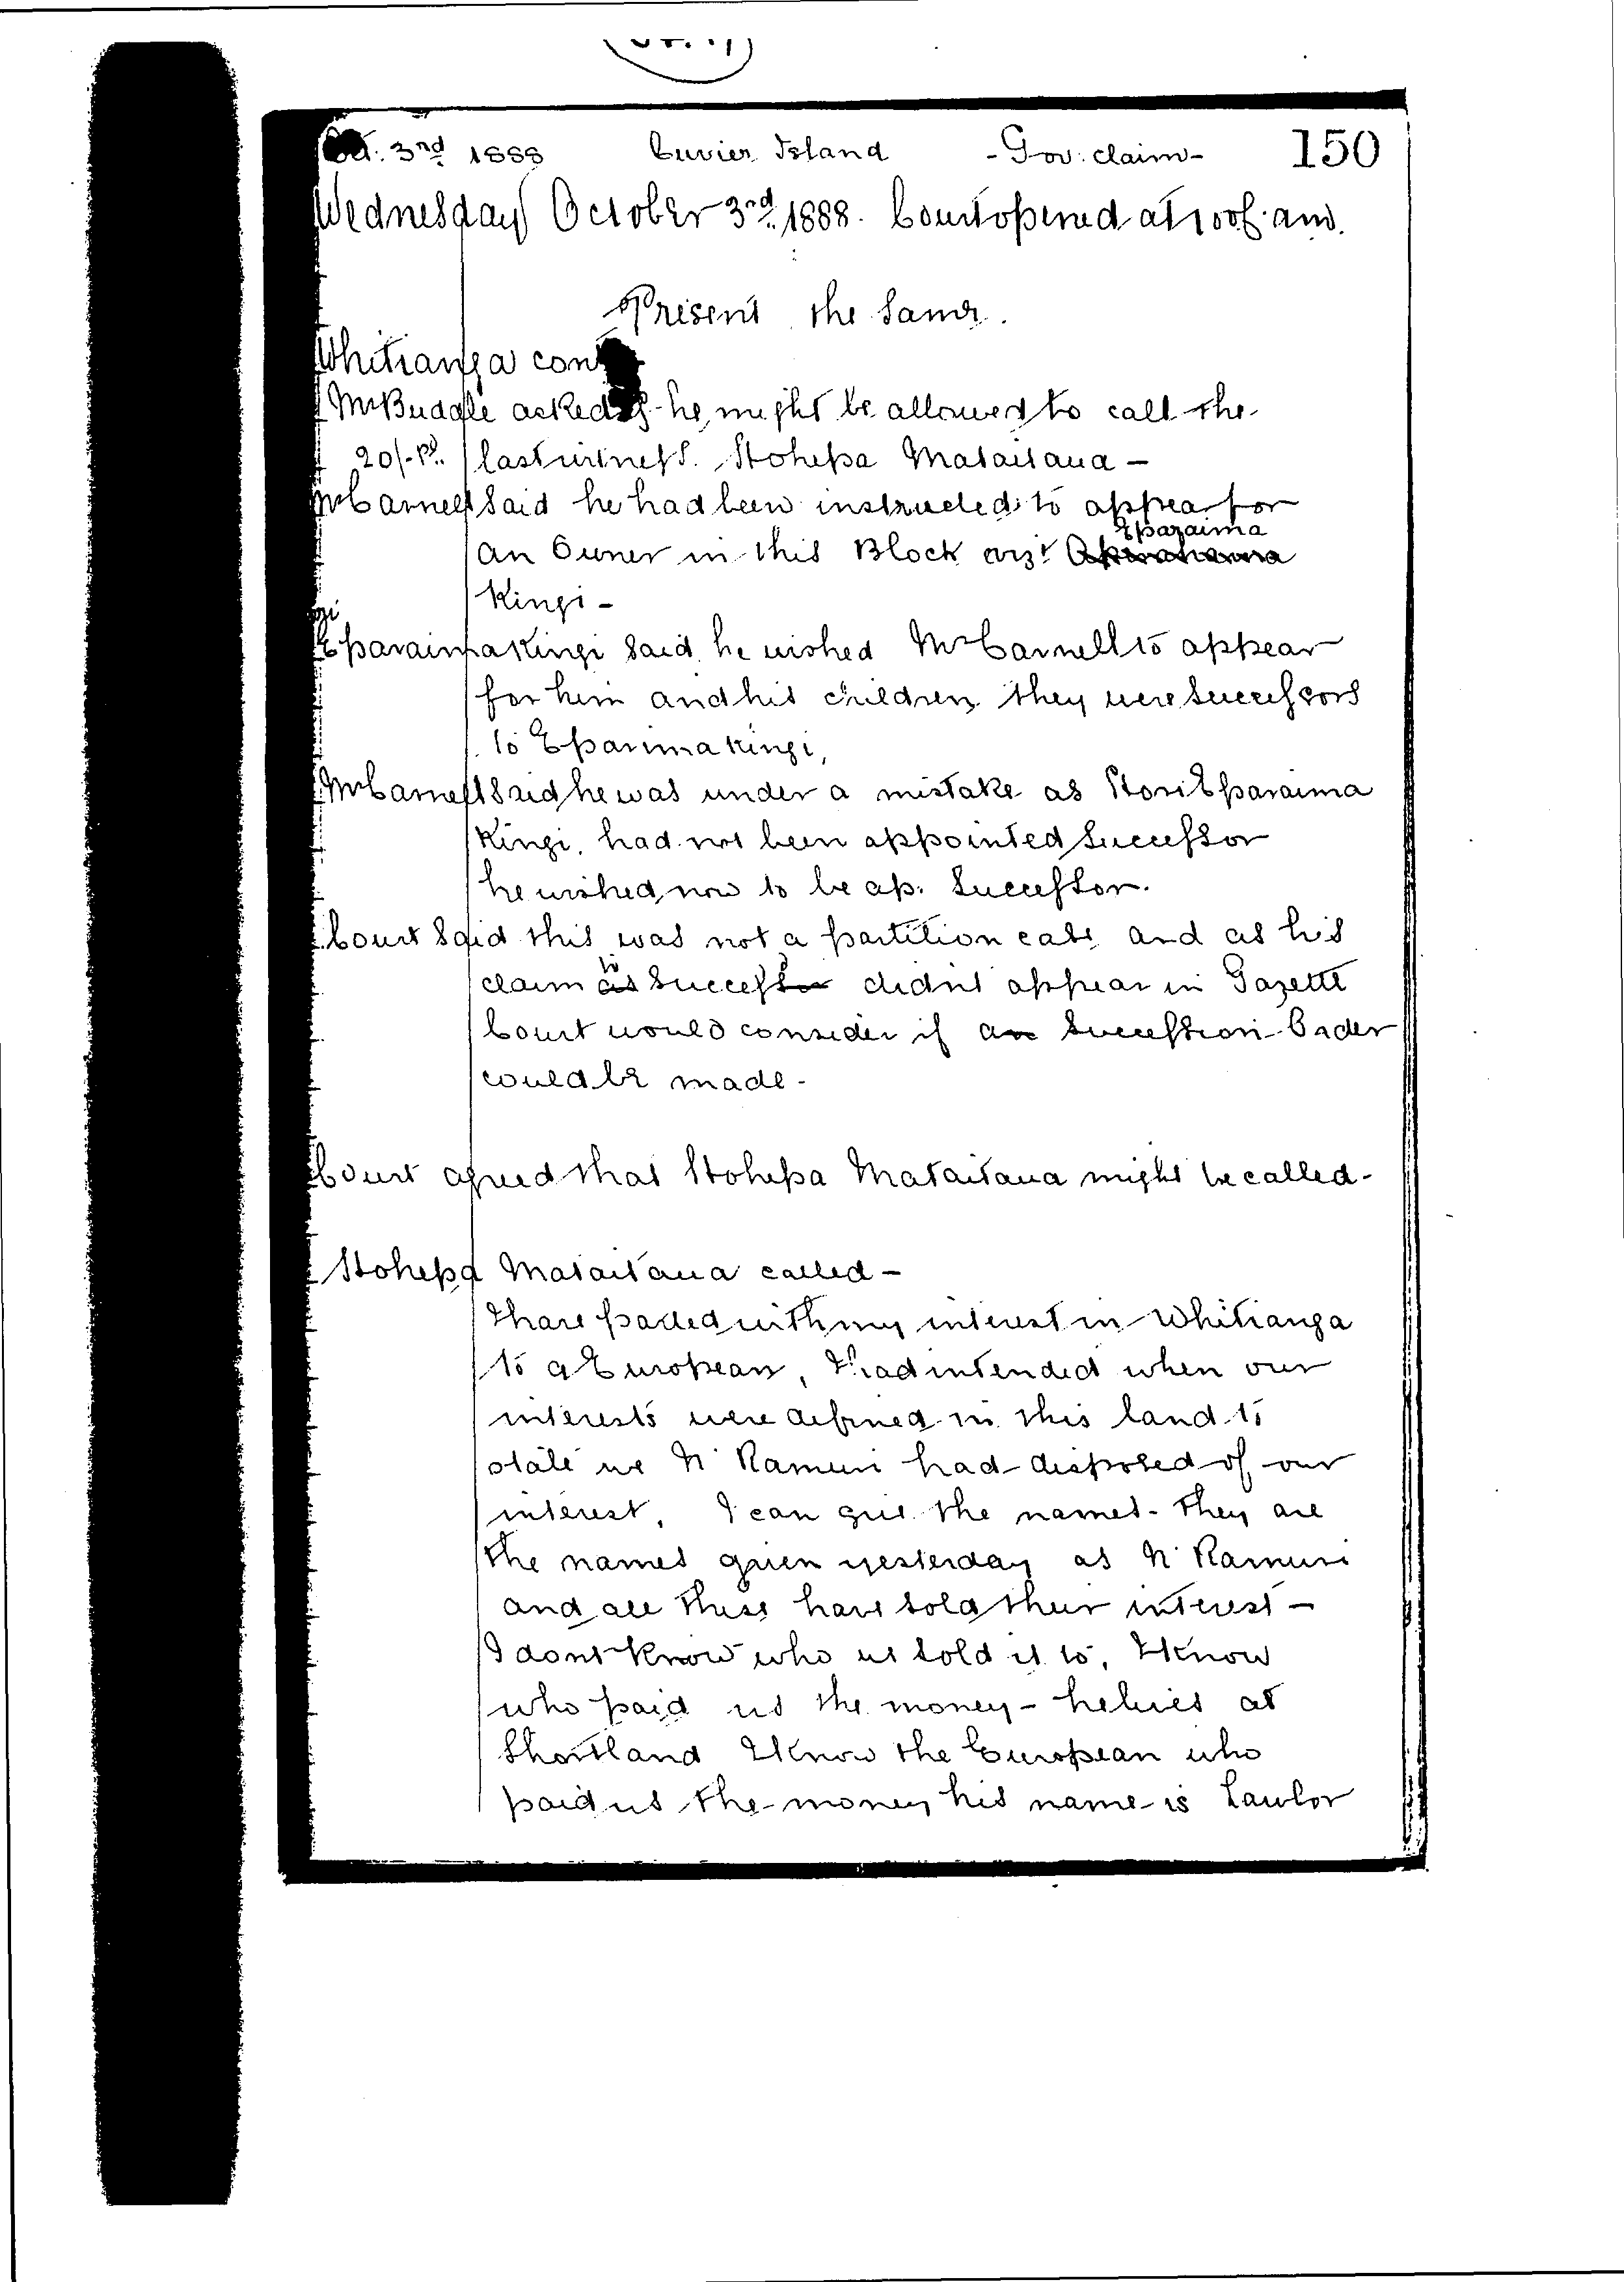 Oct. 3rd 1888 Cuvier Island - Gov: claim - 150
Wednesday October 3rd 1888. Court opened at am.
Present the same.
Whitianga cont
Mr Buddle asked if he might be allowed to call the
20/- Pd. last witness. Hohepa Mataitaua -
Mr Carnell said he had been instructed to appear for
Eparaima
an Owner in this Block viz:
Kingi -
Eparaima Kingi said he wished Mr Carnell to appear
for him and his children they were successors
to Eparima Kingi,
Mr Carnell said he was under a mistake as Hori Eparaima
Kingi, had not been appointed successor
he wished now to be ap. Successor.
Court said this was not a partition case and as his
to
claim as successor didnt appear in Gazette
Court would consider if an Succession Order
could be made -
Court agreed that Hohepa Mataitaua might be called -
Hohepa Mataitaua called -
I have parted with my interest in Whitianga
to a European, I had intended when our
interests were defined in this land to
state we N' Hamuri had disposed of our
interest, I can give the names - They are
the names given yesterday as N' Hamuri
and all these have sold their interest -
I dont know who we sold it to, I know
who paid us the money - he lives at
Shortland I know the European who
paid us the money his name is Lawlor